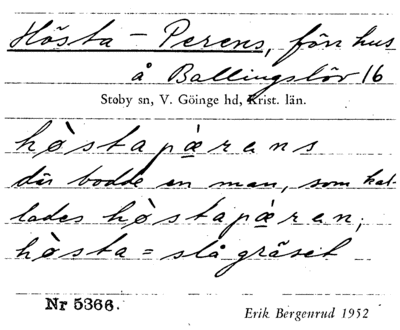 Hösta - Perens, förr hus
å Ballingslöv 16
Stoby sn, V. Göinge hd, Krist. län.
hø̀stapæ̀rens
där bodde en man, som kal-
lades hø̀stapæ̀ren;
hø̀sta = slå gräset
Nr 5366.
Erik Bergenrud 1952